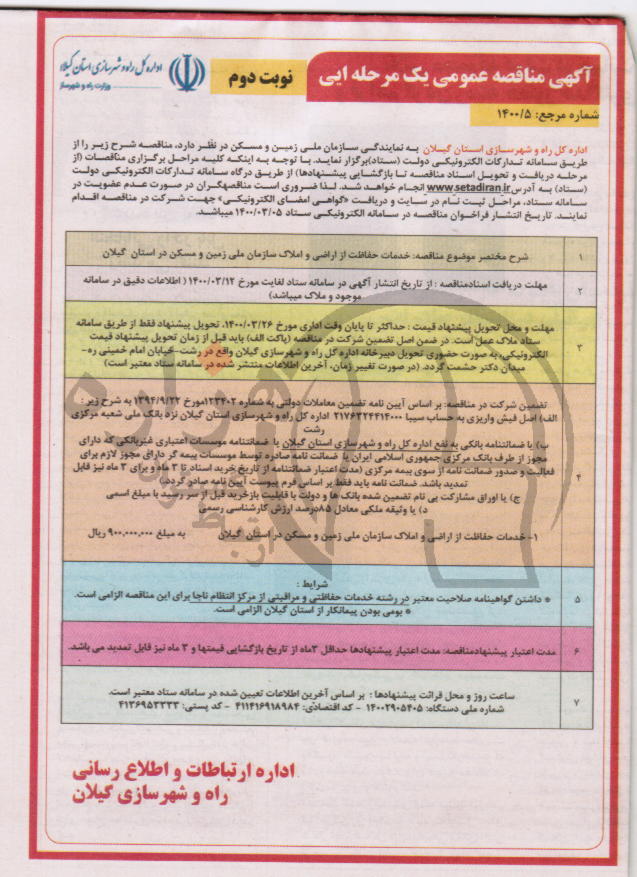 آگهی مناقصه عمومی یک مرحله ایی
نوبت دوم
اداره کل راه و شهرسازی استان گیلان
وزارت راه و شهرسازی
شماره مرجع: ۱۴۰۰/۵
اداره کل راه و شهرسازی استان گیلان به نمایندگی سازمان ملی زمین و مسکن در نظر دارد، مناقصه شرح زیر را از
طریق سامانه تدارکات الکترونیکی دولت (ستاد)برگزار نماید. با توجه به اینکه کلیه مراحل برگزاری مناقصات (از
مرحله دریافت و تحویل اسناد مناقصه تا بازگشایی پیشنهادها) از طریق درگاه سامانه تدارکات الکترونیکی دولت
(ستاد) به آدرس www.setadiran.ir انجام خواهد شد. لذا ضروری است مناقصهگران در صورت عدم عضویت در
سامانه ستاد، مراحل ثبت نام در سایت و دریافت «گواهی امضای الکترونیکی» جهت شرکت در مناقصه اقدام
نمایند. تاریخ انتشار فراخوان مناقصه در سامانه الکترونیکی ستاد ۱۴۰۰/۰۳/۰۵ میباشد.
۱
شرح مختصر موضوع مناقصه: خدمات حفاظت از اراضی و املاک سازمان ملی زمین و مسکن در استان گیلان
۲
مهلت دریافت اسنادمناقصه : از تاریخ انتشار آگهی در سامانه ستاد لغایت مورخ ۱۴۰۰/۰۳/۱۲ ( اطلاعات دقیق در سامانه
موجود و ملاک میباشد)
۳
مهلت و محل تحویل پیشنهاد قیمت : حداکثر تا پایان وقت اداری مورخ ۱۴۰۰/۰۳/۲۶. تحویل پیشنهاد فقط از طریق سامانه
ستاد ملاک عمل است. در ضمن اصل تضمین شرکت در مناقصه (پاکت الف) باید قبل از زمان تحویل پیشنهاد قیمت
الکترونیکی، به صورت حضوری تحویل دبیرخانه اداره کل راه و شهرسازی گیلان واقع در رشت-خیابان امام خمینی ره-
میدان دکتر حشمت گردد. (در صورت تغییر زمان، آخرین اطلاعات منتشر شده در سامانه ستاد معتبر است)
۴
تضمین شرکت در مناقصه: بر اساس آیین نامه تضمین معاملات دولتی به شماره ۱۲۳۴۰۲مورخ ۱۳۹۴/۹/۲۲ به شرح زیر :
الف) اصل فیش واریزی به حساب سیبا ۲۱۷۶۳۲۴۴۱۴۰۰۰ اداره کل راه و شهرسازی استان گیلان نزد بانک ملی شعبه مرکزی
رشت
ب) با ضمانتنامه بانکی به نفع اداره کل راه و شهرسازی استان گیلان یا ضمانتنامه موسسات اعتباری غیربانکی که دارای
مجوز از طرف بانک مرکزی جمهوری اسلامی ایران یا ضمانت نامه صادره توسط موسسات بیمه گر دارای مجوز لازم برای
فعالیت و صدور ضمانت نامه از سوی بیمه مرکزی (مدت اعتبار ضمانتنامه از تاریخ خرید اسناد تا ۳ ماه و برای ۳ ماه نیز قابل
تمدید باشد. ضمانت نامه باید فقط بر اساس فرم پیوست آیین نامه صادر گردد.)
ج) یا اوراق مشارکت بی نام تضمین شده بانک ها و دولت با قابلیت بازخرید قبل از سر رسید با مبلغ اسمی
د) یا وثیقه ملکی معادل ۸۵درصد ارزش کارشناسی رسمی
۱- خدمات حفاظت از اراضی و املاک سازمان ملی زمین و مسکن در استان گیلان به مبلغ ۹۰۰,۰۰۰,۰۰۰ ریال
۵
شرایط :
* داشتن گواهینامه صلاحیت معتبر در رشته خدمات حفاظتی و مراقبتی از مرکز انتظام ناجا برای این مناقصه الزامی است.
* بومی بودن پیمانکار از استان گیلان الزامی است.
۶
مدت اعتبار پیشنهادمناقصه: مدت اعتبار پیشنهادها حداقل ۳ماه از تاریخ بازگشایی قیمتها و ۳ ماه نیز قابل تمدید می باشد.
۷
ساعت روز و محل قرائت پیشنهادها : بر اساس آخرین اطلاعات تعیین شده در سامانه ستاد معتبر است.
شماره ملی دستگاه: ۱۴۰۰۲۹۰۵۴۰۵ - کد اقتصادی: ۴۱۱۴۱۶۹۱۸۹۸۴ - کد پستی: ۴۱۳۶۹۵۳۳۳۳
اداره ارتباطات و اطلاع رسانی
راه و شهرسازی گیلان